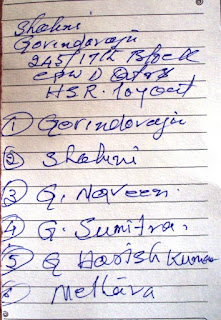 Shalini
Govindaraju
245/17th Block
CPWD Qtrs
HSR. layout
1 Govindaraju
2 Shalini
3 G. Naveen.
4 G. Sumitra.
5 G Harish Kumar
6